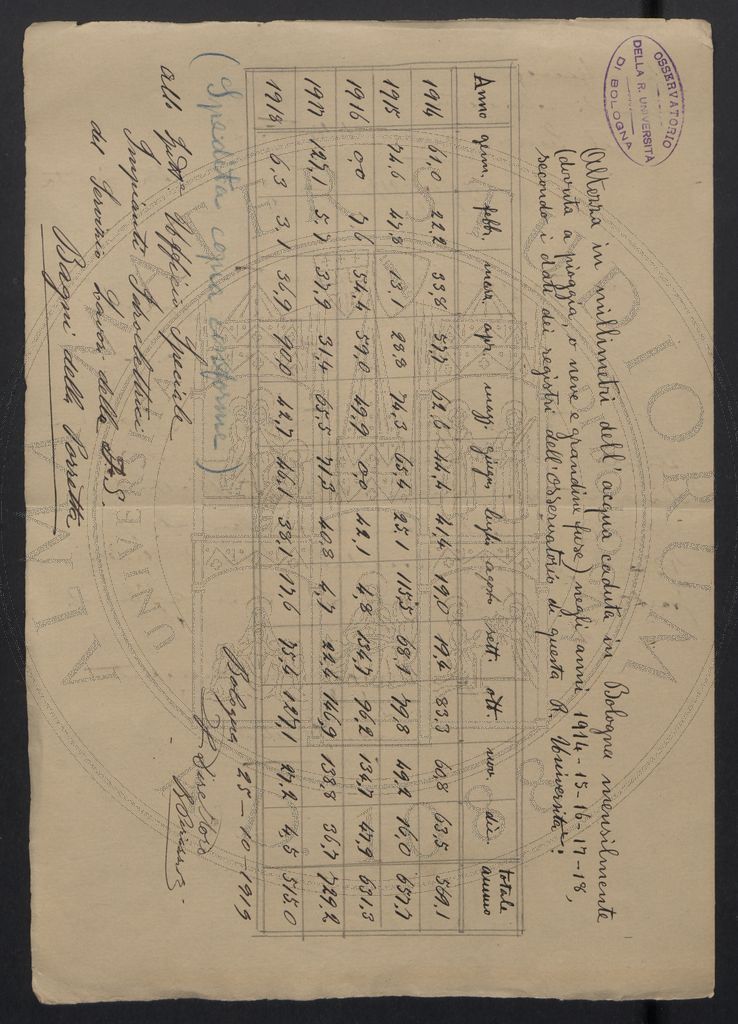 OSSERVATORIO
DELLA R. UNIVERSITÀ
DI BOLOGNA
Altezza in millimetri dell'acqua caduta in Bologna mensilmente
(dovuta a pioggia, o neve e grandine fuse) negli anni 1914-15-16-17-18,
secondo i dati dei registri dell'Osservatorio di questa R. Università:
Anno genn. febb. marz. apr. magg. giugn. lugli. agosto sett. ott. nov. dic. totale annuo
1914 61,0 22,2 33,8 57,7 62,6 44,4 41,4 19,0 19,4 83,3 60,8 63,5 569,1
1915 74,6 47,8 13,1 28,8 74,3 65,4 25,1 115,5 68,1 79,8 49,2 16,0 657,7
1916 0,0 7,6 54,4 59,0 49,9 0,0 42,1 4,8 134,7 96,2 134,7 47,9 631,3
1917 127,1 5,7 37,9 31,4 65,5 71,3 40,8 4,7 22,4 146,9 138,8 36,7 729,2
1918 6,3 3,1 36,9 90,0 42,7 46,1 38,1 17,6 75,4 127,1 27,2 4,5 515,0
Bologna 25-10-1919
(Spedita copia conforme)
Il Direttore
all' Ufficio Speciale
Impianti Idroelettrici
del Servizio Lavori delle F.S.
Bagni della Porretta